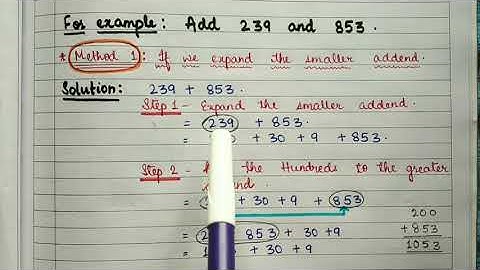 For example: Add 239 and 853.
* Method 1: If we expand the smaller addend.
Solution: 239 + 853.
Step 1 - Expand the smaller addend.
= 239 + 853.
= + 30 + 9 + 853.
Step 2 - the Hundreds to the greater
= + 30 + 9 + 853
200
+ 853
1053
= 853 + 30 + 9
= + 30 + 9